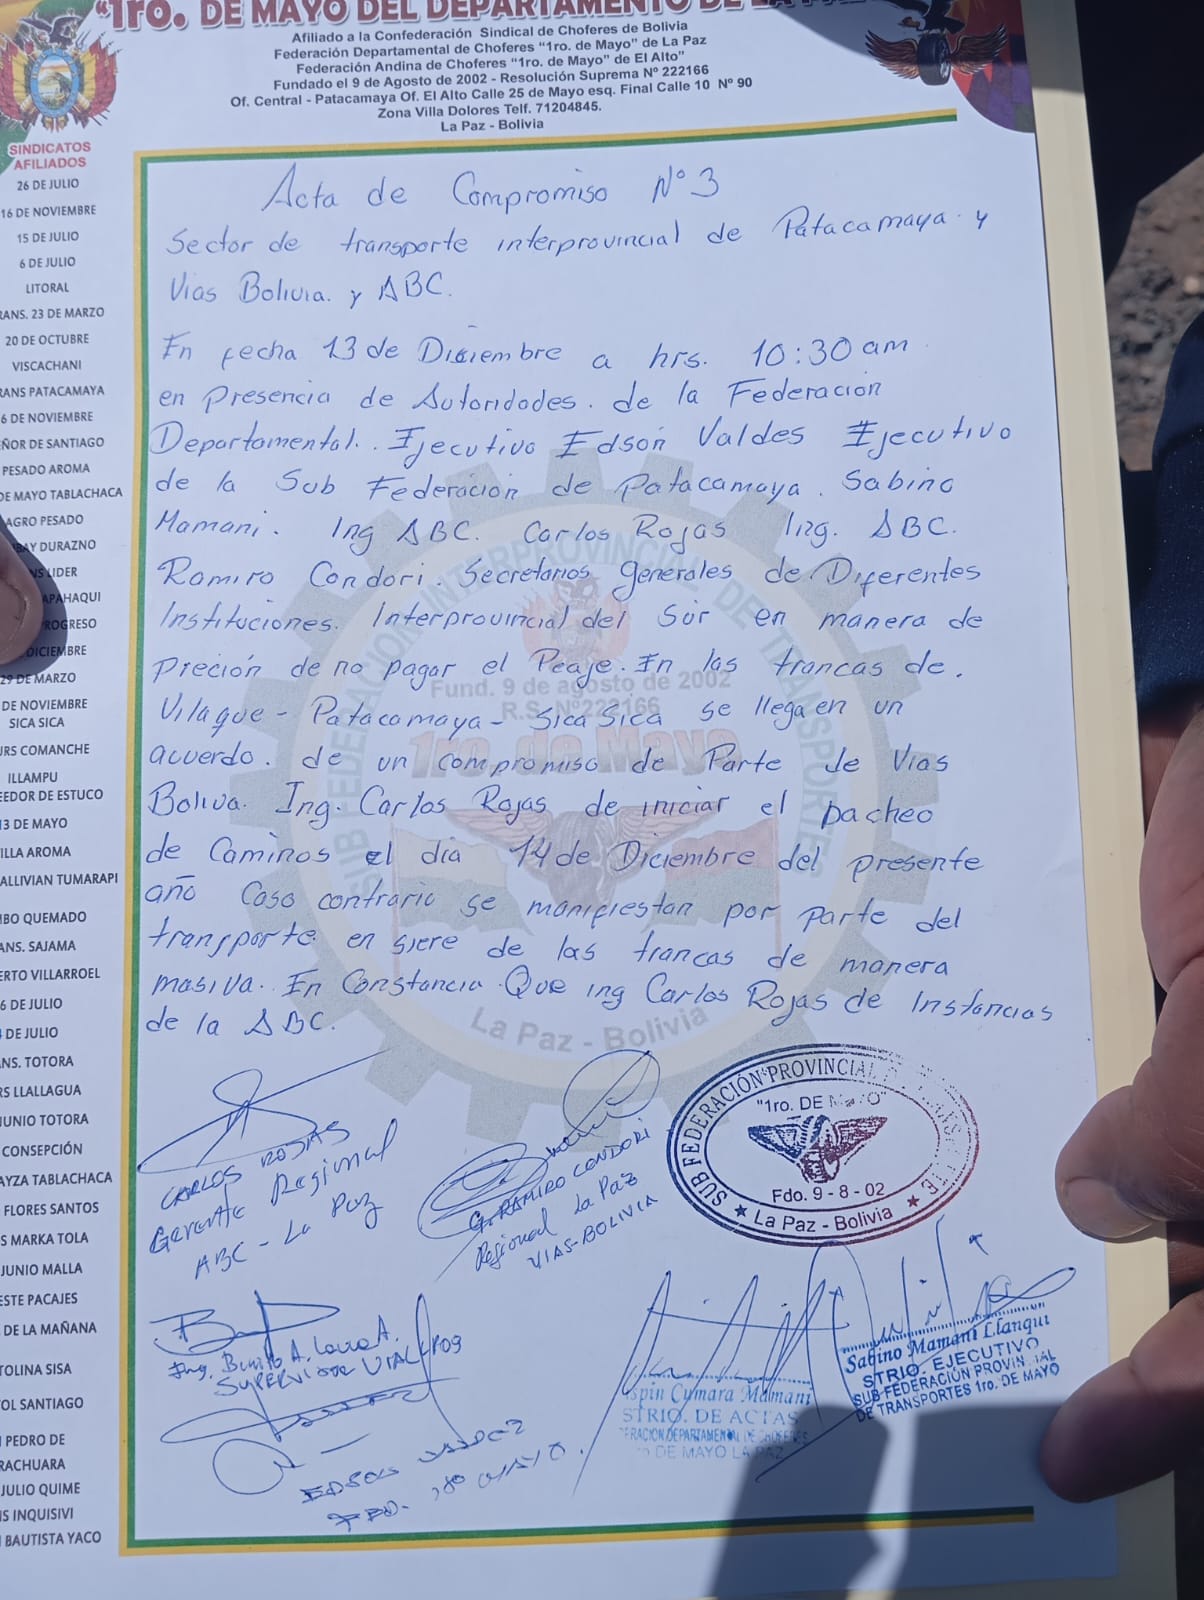 "1ro. DE MAYO DEL DEPARTAMENTO DE LA
Afiliado a la Confederación Sindical de Choferes de Bolivia
Federación Departamental de Choferes "1ro. de Mayo" de La Paz
Federación Andina de Choferes "1ro. de Mayo" de El Alto"
Fundado el 9 de Agosto de 2002 - Resolución Suprema Nº 222166
Of. Central - Patacamaya Of. El Alto Calle 25 de Mayo esq. Final Calle 10 Nº 90
Zona Villa Dolores Telf. 71204845.
La Paz - Bolivia
SINDICATOS
AFILIADOS
26 DE JULIO
16 DE NOVIEMBRE
15 DE JULIO
6 DE JULIO
LITORAL
RANS. 23 DE MARZO
20 DE OCTUBRE
VISCACHANI
RANS PATACAMAYA
6 DE NOVIEMBRE
ÑOR DE SANTIAGO
PESADO AROMA
DE MAYO TABLACHACA
AGRO PESADO
AY DURAZNO
LIDER
APAHAQUI
ROGRESO
DICIEMBRE
29 DE MARZO
DE NOVIEMBRE
SICA SICA
RS COMANCHE
ILLAMPU
EEDOR DE ESTUCO
13 DE MAYO
ILLA AROMA
ALLIVIAN TUMARAPI
MBO QUEMADO
ANS. SAJAMA
ERTO VILLARROEL
6 DE JULIO
DE JULIO
NS. TOTORA
RS LLALLAGUA
JUNIO TOTORA
CONSEPCIÓN
AYZA TABLACHACA
FLORES SANTOS
S MARKA TOLA
JUNIO MALLA
ESTE PACAJES
DE LA MAÑANA
TOLINA SISA
OL SANTIAGO
PEDRO DE
RACHUARA
JULIO QUIME
S INQUISIVI
BAUTISTA YACO
Acta de Compromiso Nº 3
Sector de transporte interprovincial de Patacamaya y
Vias Bolivia. y ABC.
En fecha 13 de Diciembre a hrs. 10:30 am
en Presencia de Autoridades. de la Federación
Departamental. Ejecutivo Edson Valdes Ejecutivo
de la Sub Federación de Patacamaya. Sabino
Mamani. Ing ABC. Carlos Rojas Ing. ABC.
Ramiro Condori. Secretarios generales de Diferentes
Instituciones. Interprovincial del Sur en manera de
preción de no pagar el Peaje. En las trancas de.
Vilaque - Patacamaya - Sica Sica se llega en un
acuerdo. de un compromiso de Parte de Vias
Boliva. Ing. Carlos Rojas de iniciar el pacheo
de Caminos el dia 14 de Diciembre del presente
año Caso contrario se manifiestan por parte del
transporte en siere de las trancas de manera
masiva. En Constancia Que ing Carlos Rojas de Instancias
de la ABC.
SUB FEDERACION INTERPROVINCIAL DE TRANSPORTES
Fund. 9 de agosto de 2002
R.S. Nº 222166
1ro. de Mayo
La Paz - Bolivia
CARLOS ROJAS
Gerente Regional
ABC - La Paz
G. RAMIRO CONDORI
Regional La Paz
VIAS-BOLIVIA
SUB FEDERACIÓN PROVINCIAL
"1ro. DE MAYO"
Fdo. 9 - 8 - 02
La Paz - Bolivia
Ing. Benito A.
SUPERVISOR VIAL
EDSON
FED.
Cumara Mamani
STRIO. DE ACTAS
ERACION DEPARTAMENTAL DE CHOFERES
DE MAYO LA PAZ
Sabino Mamani Llanqui
STRIO. EJECUTIVO
SUB FEDERACIÓN PROVINCIAL
DE TRANSPORTES 1ro. DE MAYO